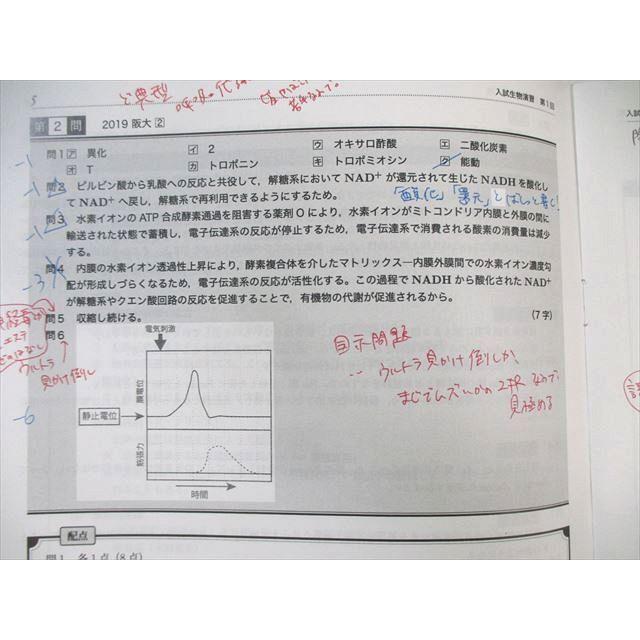 5
ど典型
入試生物演習 第1回
第2問 2019 阪大 ②
問1 ア 異化 イ 2 ウ オキサロ酢酸 エ 二酸化炭素
オ T カ トロポニン キ トロポミオシン ク 能動
-1
問2 ピルビン酸から乳酸への反応と共役して，解糖系において NAD⁺ が還元されて生じた NADH を酸化し
て NAD⁺ へ戻し，解糖系で再利用できるようにするため。
-1
「酸化」「還元」とばしっと書く!
問3 水素イオンの ATP 合成酵素通過を阻害する薬剤 O により，水素イオンがミトコンドリア内膜と外膜の間に
輸送された状態で蓄積し，電子伝達系の反応が停止するため，電子伝達系で消費される酸素の消費量は減少
する。
-1
問4 内膜の水素イオン透過性上昇により，酵素複合体を介したマトリックス―内膜外膜間での水素イオン濃度勾
配が形成しづらくなるため，電子伝達系の反応が活性化する。この過程で NADH から酸化された NAD⁺
が解糖系やクエン酸回路の反応を促進することで，有機物の代謝が促進されるから。
-3
問5 収縮し続ける。 (7字)
問6
ウルトラ
見かけ倒し
-6
電気刺激
膜電位
静止電位
筋張力
時間
ウルトラ見かけ倒し
見極める
配点
問1 各1点（8点）